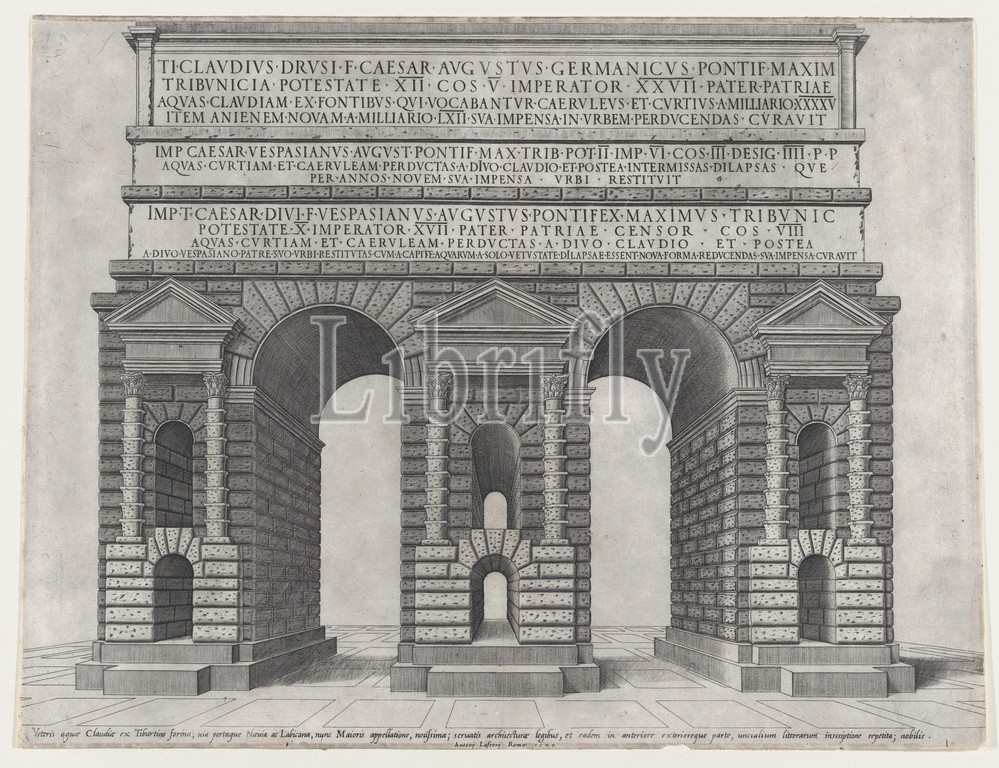 TI·CLAVDIVS·DRVSI·F·CAESAR·AVGVSTVS·GERMANICVS·PONTIF·MAXIM
TRIBVNICIA·POTESTATE·XII·COS·V·IMPERATOR·XXVII·PATER·PATRIAE
AQVAS·CLAVDIAM·EX·FONTIBVS·QVI·VOCABANTVR·CAERVLEVS·ET·CVRTIVS·A·MILLIARIO·XXXXV
ITEM·ANIENEM·NOVAM·A·MILLIARIO·LXII·SVA·IMPENSA·IN·VRBEM·PERDVCENDAS·CVRAVIT
IMP·CAESAR·VESPASIANVS·AVGVST·PONTIF·MAX·TRIB·POT·II·IMP·VI·COS·III·DESIG·IIII·P·P
AQVAS·CVRTIAM·ET·CAERVLEAM·PERDVCTAS·A·DIVO·CLAVDIO·ET·POSTEA·INTERMISSAS·DILAPSAS·QVE
PER·ANNOS·NOVEM·SVA·IMPENSA·VRBI·RESTITVIT
IMP·T·CAESAR·DIVI·F·VESPASIANVS·AVGVSTVS·PONTIFEX·MAXIMVS·TRIBVNIC
POTESTATE·X·IMPERATOR·XVII·PATER·PATRIAE·CENSOR·COS·VIII
AQVAS·CVRTIAM·ET·CAERVLEAM·PERDVCTAS·A·DIVO·CLAVDIO·ET·POSTEA
A·DIVO·VESPASIANO·PATRE·SVO·VRBI·RESTITVTAS·CVM·A·CAPITE·AQVARVM·A·SOLO·VETVSTATE·DILAPSAE·ESSENT·NOVA·FORMA·REDVCENDAS·SVA·IMPENSA·CVRAVIT
Librifly
Veteris aquæ Claudiæ ex Tiburtino forma; via portaque Nævia ac Labicana, nunc Maioris appellatione, notissima; servatis architecturæ legibus, et eadem in anteriore exterioreque parte, uncialium litterarum inscriptione repetita; nobilis.
Antonij Lafrerij Romæ